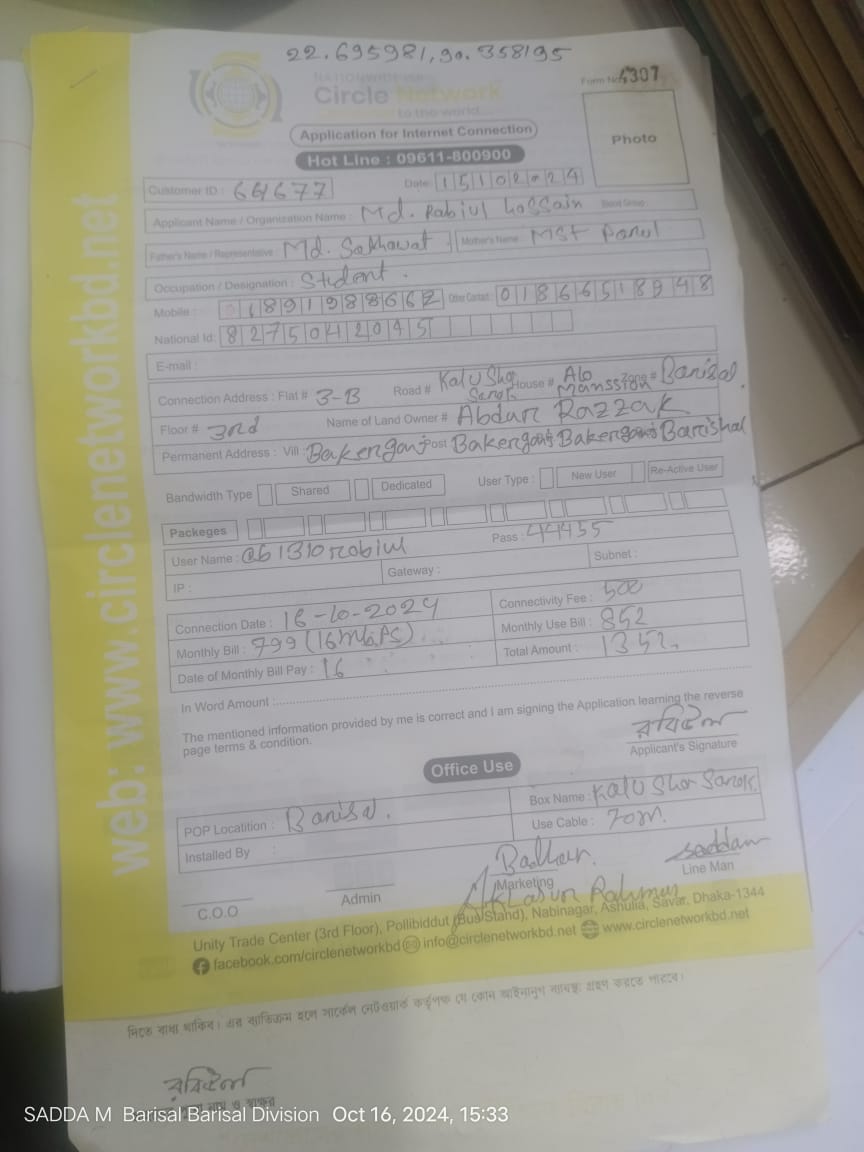 22.695981,90.358195
NATIONWIDE ISP
Circle Network
to the world...
Form No: 4307
Application for Internet Connection
Photo
Hot Line : 09611-800900
Customer ID : 664677
Date: 15102024
Applicant Name / Organization Name : Md. Rabiul Hossain Blood Group :
Father's Name / Representative : Md. Sakhawat Mother's Name : MST Parul
Occupation / Designation : Student.
Mobile : 01891988662 Other Contact : 01866518948
National Id: 8275042045
E-mail :
Connection Address : Flat # 3-B Road # Kalu Shar Sarok House # Alo Manssion Zone # Barisal.
Floor # 3rd Name of Land Owner # Abdur Razzak
Permanent Address : Vill: Bakerganj Post Bakerganj Bakerganj Barishal
Bandwidth Type Shared Dedicated User Type : New User Re-Active User
Packeges
User Name : @b1310robiul Pass : 44455
IP : Gateway : Subnet :
Connection Date : 16-10-2024 Connectivity Fee : 500
Monthly Bill : 799 (16Mbps) Monthly Use Bill : 852
Date of Monthly Bill Pay : 16 Total Amount : 1352
In Word Amount :
The mentioned information provided by me is correct and I am signing the Application learning the reverse
page terms & condition.
রবিউল
Applicant's Signature
Office Use
POP Locatition : Barisal. Box Name : Kalu Shar Sarok
Installed By : Use Cable : 70m.
Saddam
C.O.O Admin Marketing Line Man
Unity Trade Center (3rd Floor), Pollibiddut (Bus Stand), Nabinagar, Ashulia, Savar, Dhaka-1344
facebook.com/circlenetworkbd info@circlenetworkbd.net www.circlenetworkbd.net
web: www.circlenetworkbd.net
দিতে বাধ্য থাকিব। এর ব্যতিক্রম হলে সার্কেল নেটওয়ার্ক কর্তৃপক্ষ যে কোন আইনানুগ ব্যবস্থা গ্রহণ করতে পারবে।
রবিউল
ও স্বাক্ষর
SADDA M Barisal Barisal Division Oct 16, 2024, 15:33